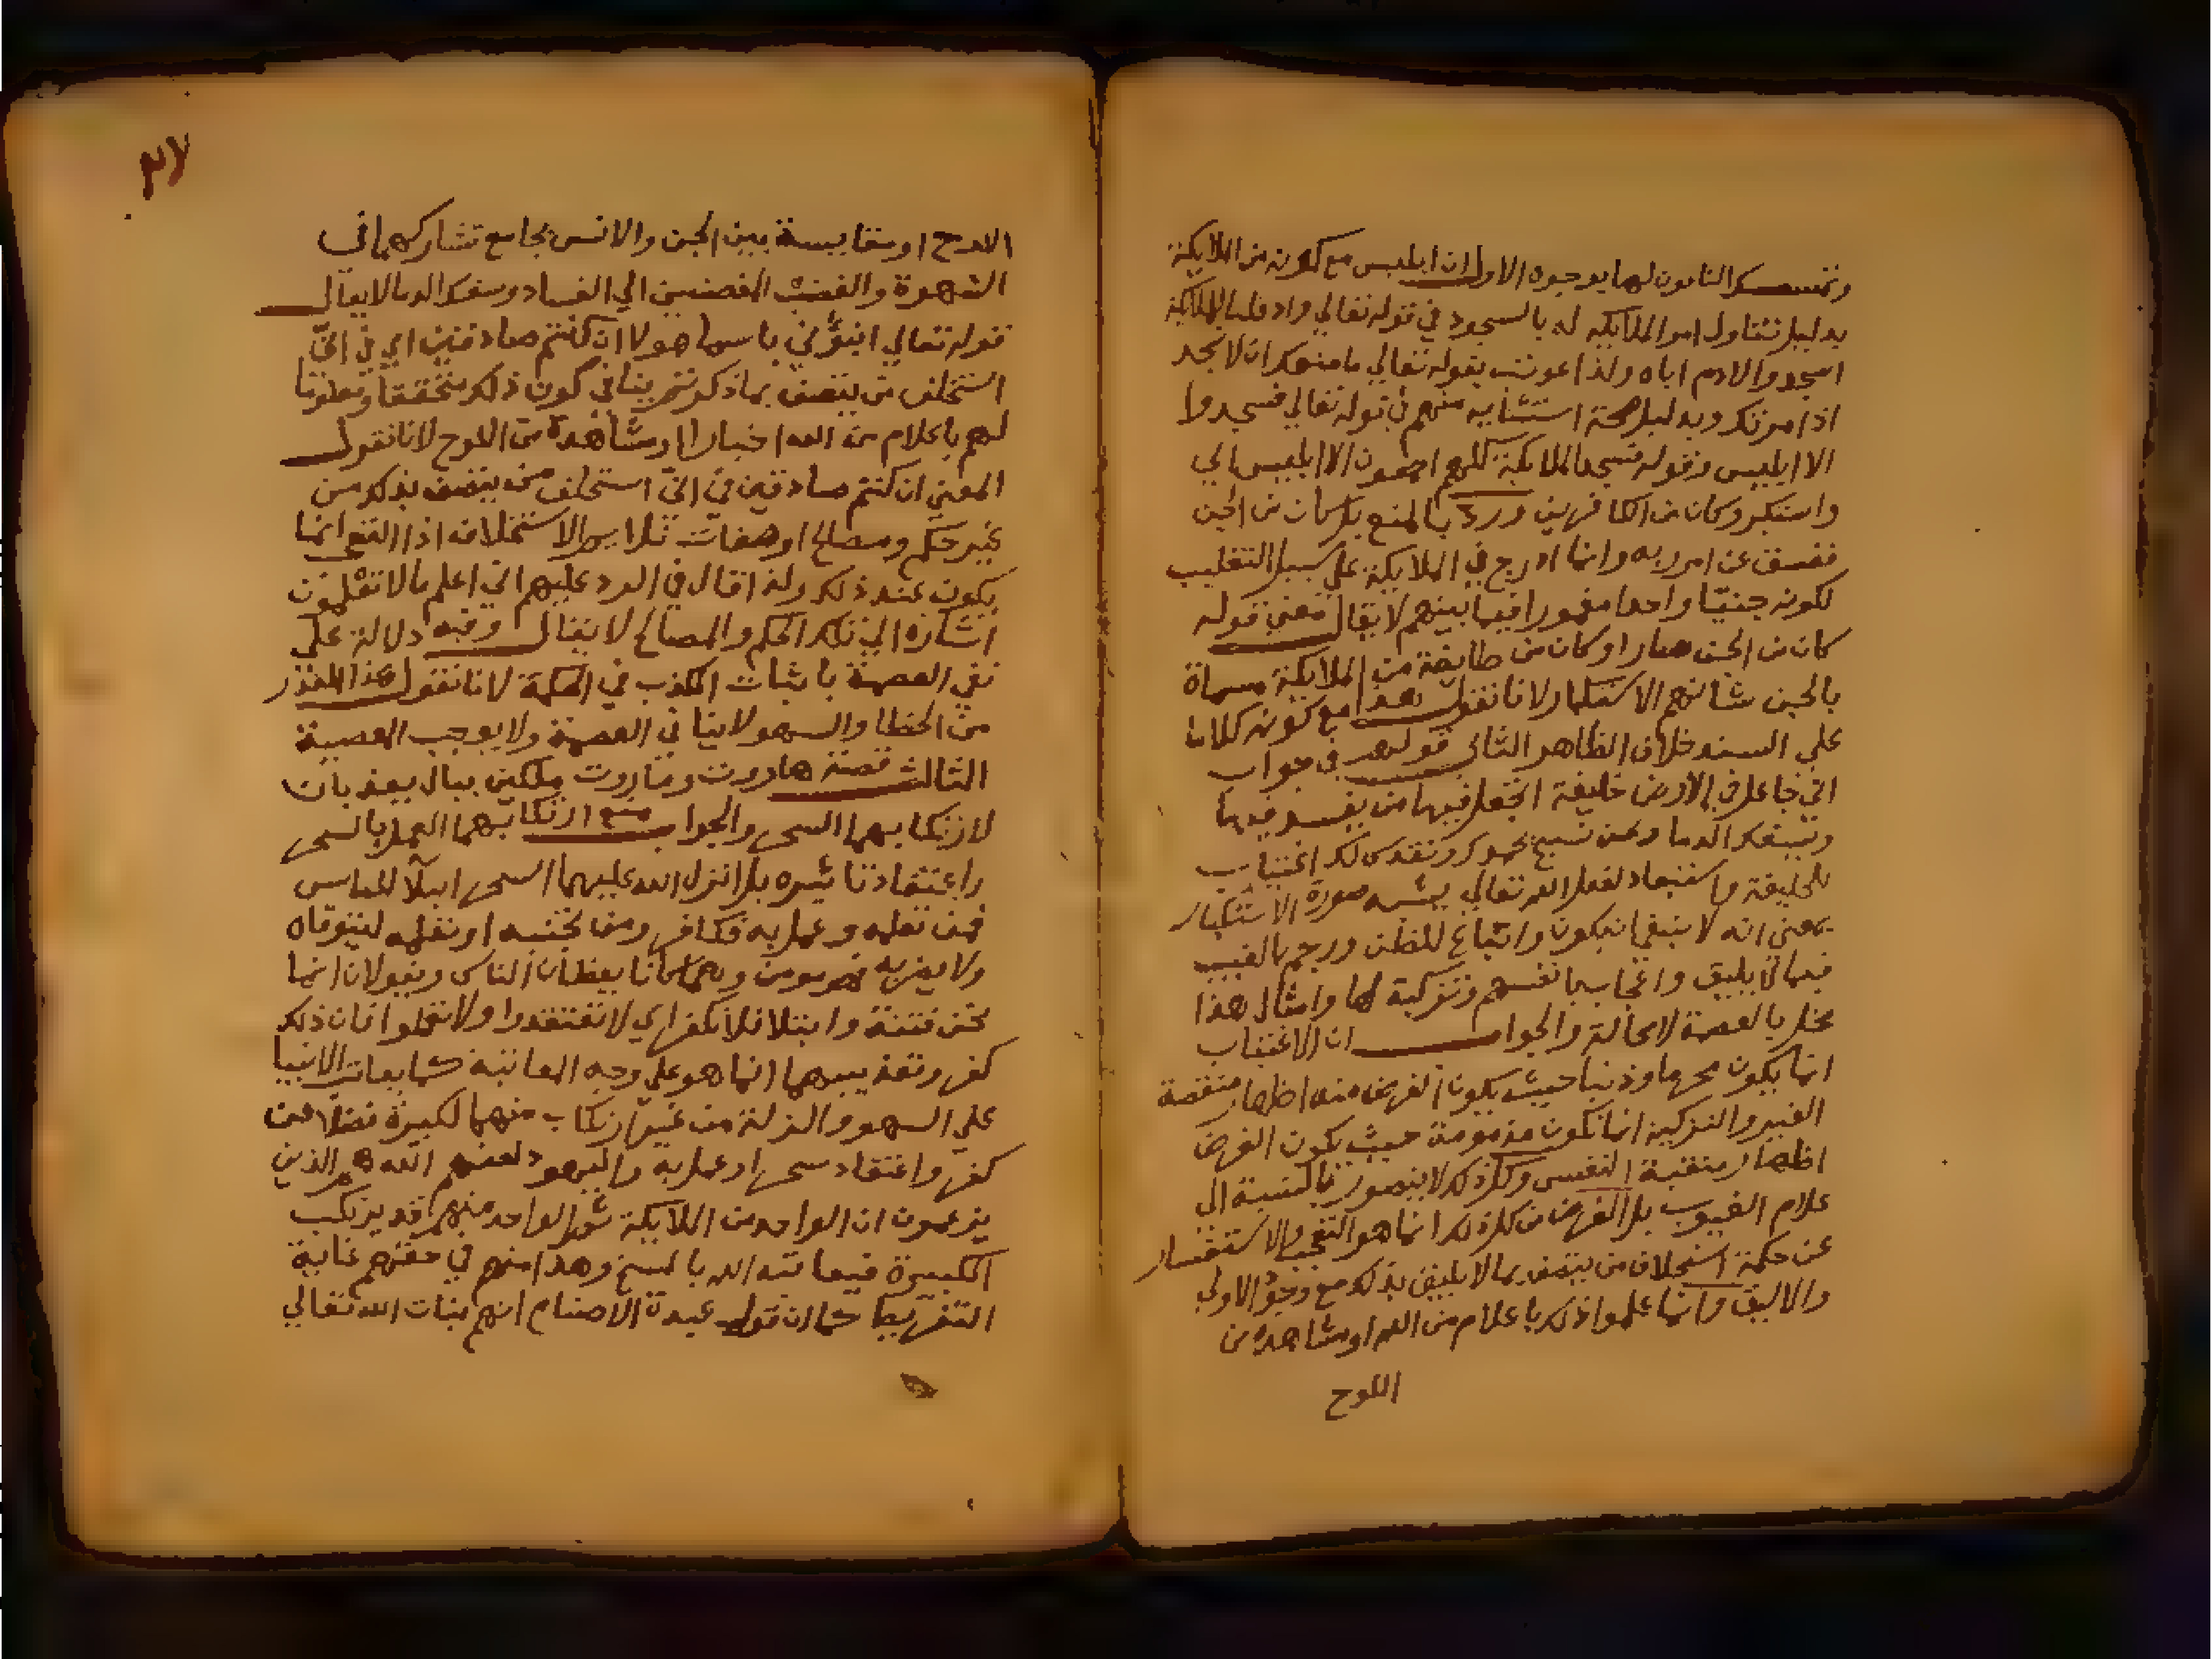 وتمسك النافون لها بوجوه الاول ان ابليس مع كونه من الملايكة
بدليل تناول امر الملايكة له بالسجود في قوله تعالي واذ قلنا للملايكة
اسجدوا لادم اياه ولذا عوتب بقوله تعالي ما منعك ان لا تسجد
اذ امرتك وبدليل صحة استثنايه منهم في قوله تعالي فسجدوا
الا ابليس وقوله فسجد الملايكة كلهم اجمعون الا ابليس ابي
واستكبر وكان من الكافرين ورد بالمنع بل كان من الجن
ففسق عن امر ربه وانما ادرج في الملايكة علي سبيل التغليب
لكونه جنيا واحدا مغمورا فيما بينهم لا يقال معني قوله
كان من الجن صار او كان من طايفة من الملايكة مسماة
بالجن شانهم الاستكبار لانا نقول هذا مع كونه كلاما
علي السند خلاف الظاهر الثاني قولهم في جواب
اني جاعل في الارض خليفة اتجعل فيها من يفسد فيها
ويسفك الدما ونحن نسبح بحمدك ونقدس لك اغتياب
للخليفة واستبعاد لفعل الله تعالي يشبه صورة الاستكبار
بمعني انه لا ينبغي ان يكون واتباع للظن ورجم بالغيب
فيما لا يليق واعجاب بانفسهم وتزكية لها وامثال هذا
مخل بالعصمة لا محالة والجواب ان الاغتياب
انما يكون محرما وذنبا حيث يكون الغرض منه اظهار منقصة
الغير والتزكية انما تكون مذمومة حيث يكون الغرض
اظهار منقبة النفس وكل ذلك لا يتصور بالنسبة الي
علام الغيوب بل الغرض من كل ذلك انما هو التعجب والاستفسار
عن حكمة استخلاف من يتصف بما لا يليق بذلك مع وجود الاولي
والاليق وانما علموا ذلك باعلام من الله او مشاهدة من
اللوح
٢٧
اللوح او مقايسة بين الجن والانس بجامع تشاركهما في
الشهوة والغضب المفضيين الي الفساد وسفك الدما لا يقال
قوله تعالي انبؤني باسما هولا ان كنتم صادقين اي في اني
استخلف من يتصف بما ذكرتم ينافي كون ذلك متحققا ومعلوما
لهم باعلام من الله اخبارا او مشاهدة من اللوح لانا نقول
المعني ان كنتم صادقين في اني استخلف من يتصف بذلك من
غير حكم ومصالح او صفات تلايم الاستخلاف اذ التعجب انما
يكون عند ذلك ولذا قال في الرد عليهم اني اعلم ما لا تعلمون
اشارة الي تلك الحكم والمصالح لا يقال وفيه دلالة علي
نفي العصمة باثبات الكذب في الحكمة لانا نقول هذا القدر
من الخطا والسهو لا ينافي العصمة ولا يوجب المعصية
الثالث قصة هاروت وماروت ملكين ببابل يعذبان
لارتكابهما السحر والجواب منع ارتكابهما العمل بالسحر
واعتقاد تاثيره بل انزل الله عليهما السحر ابتلا للناس
فمن تعلمه وعمل به فكافر ومن تجنبه او تعلمه ليتوقاه
ولا يغتر به فهو مومن وهما كانا يعظان الناس ويقولان انما
نحن فتنة وابتلا فلا تكفر اي لا تعتقدوا ولا تعملوا فان ذلك
كفر وتعذيبهما انما هو علي وجه المعاتبة كما يعاتب الانبيا
علي السهو والزلة من غير ارتكاب منهما لكبيرة فضلا عن
كفر واعتقاد سحر او عمل به واليهود لعنهم الله هم الذين
يزعمون ان الواحد من الملايكة قد يرتكب
الكبيرة فيعاقبه الله بالمسخ وهذا منهم في حقهم غاية
التفريط كما ان قول عبدة الاصنام انهم بنات الله تعالي